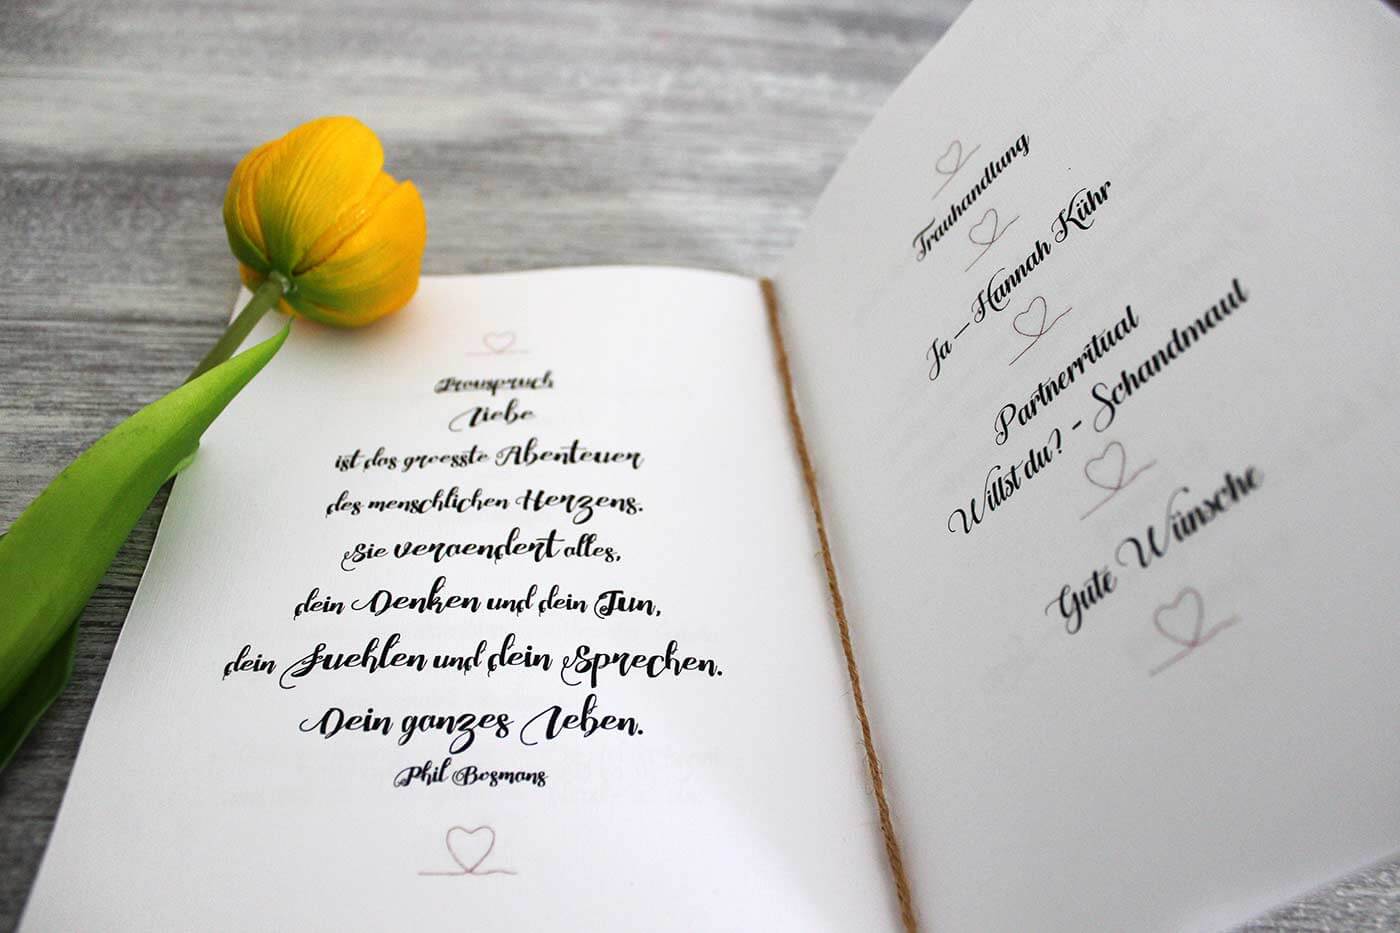 Treuspruch
Liebe
ist das groesste Abenteuer
des menschlichen Herzens.
Sie veraendert alles,
dein Denken und dein Tun,
dein Fuehlen und dein Sprechen.
Dein ganzes Leben.
Phil Bosmans
Trauhandlung
Ja – Hannah Kühr
Partnerritual
Willst du? - Schandmaul
Gute Wünsche